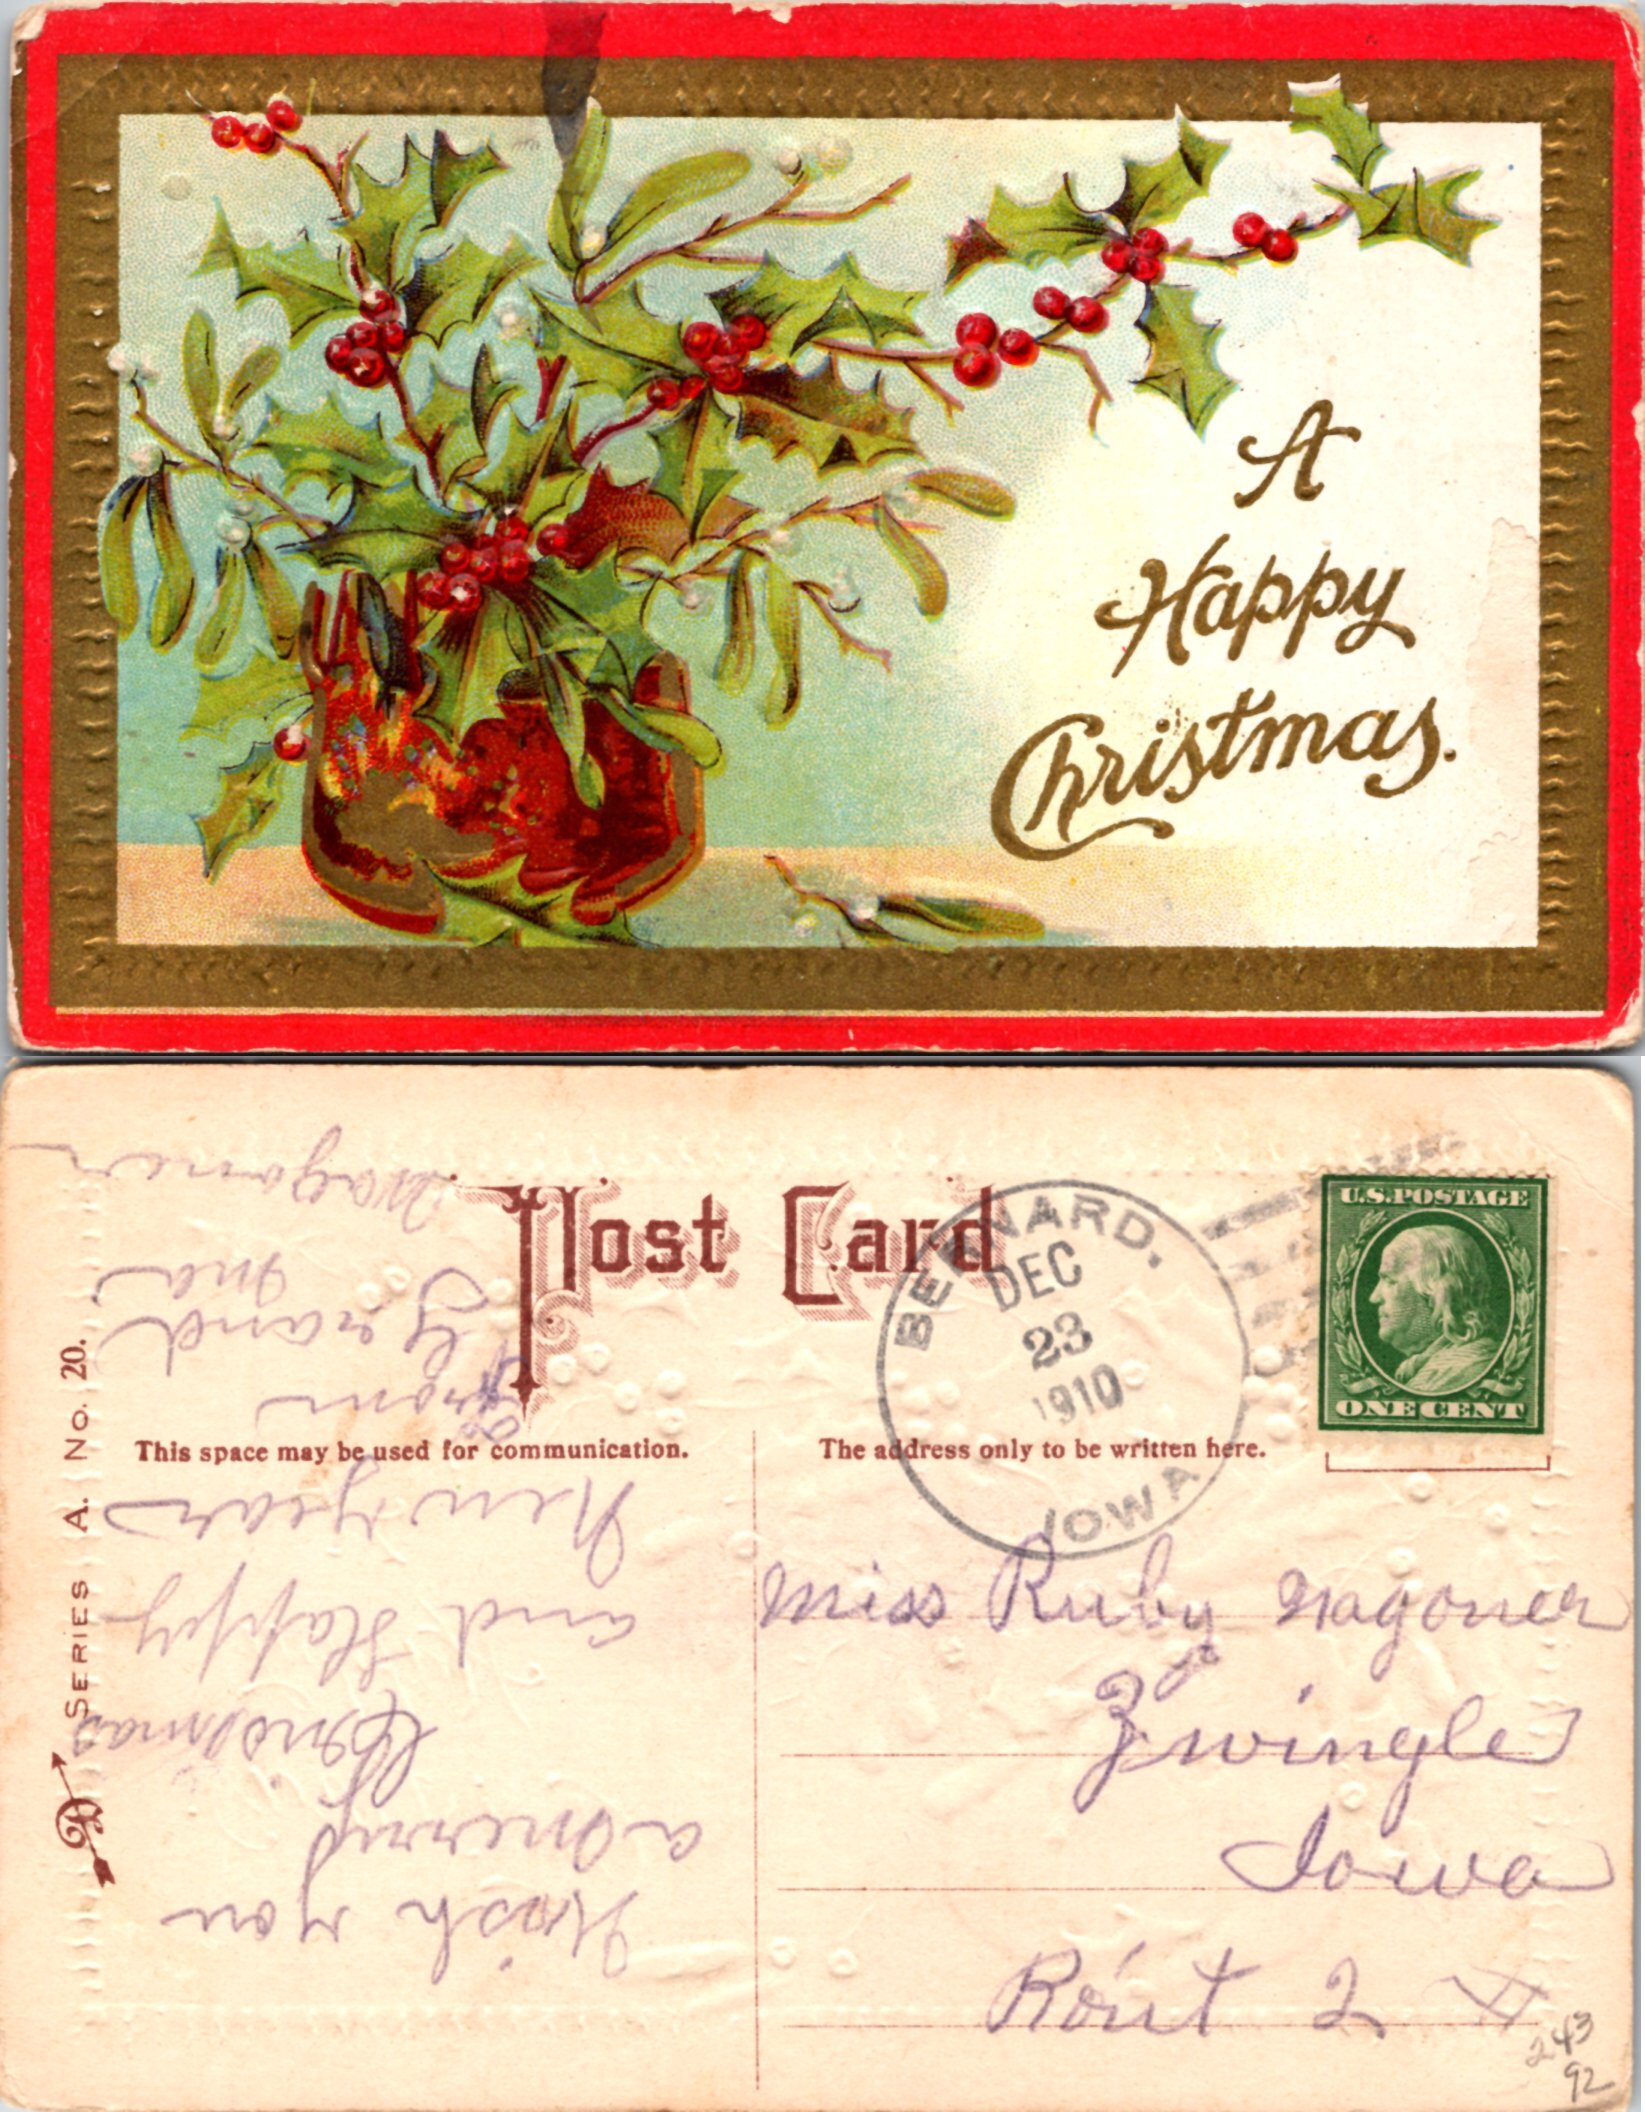 A
Happy
Christmas.
Post Card
BERNARD.
DEC
23
1910
IOWA
U.S. POSTAGE
ONE CENT
SERIES A. No. 20.
This space may be used for communication.
The address only to be written here.
Wish you
a merry
Christmas
and Happy
New year
From
Grand
ma
Wagoner
Miss Ruby Wagoner
Zwingle
Iowa
Rout 2
243
92